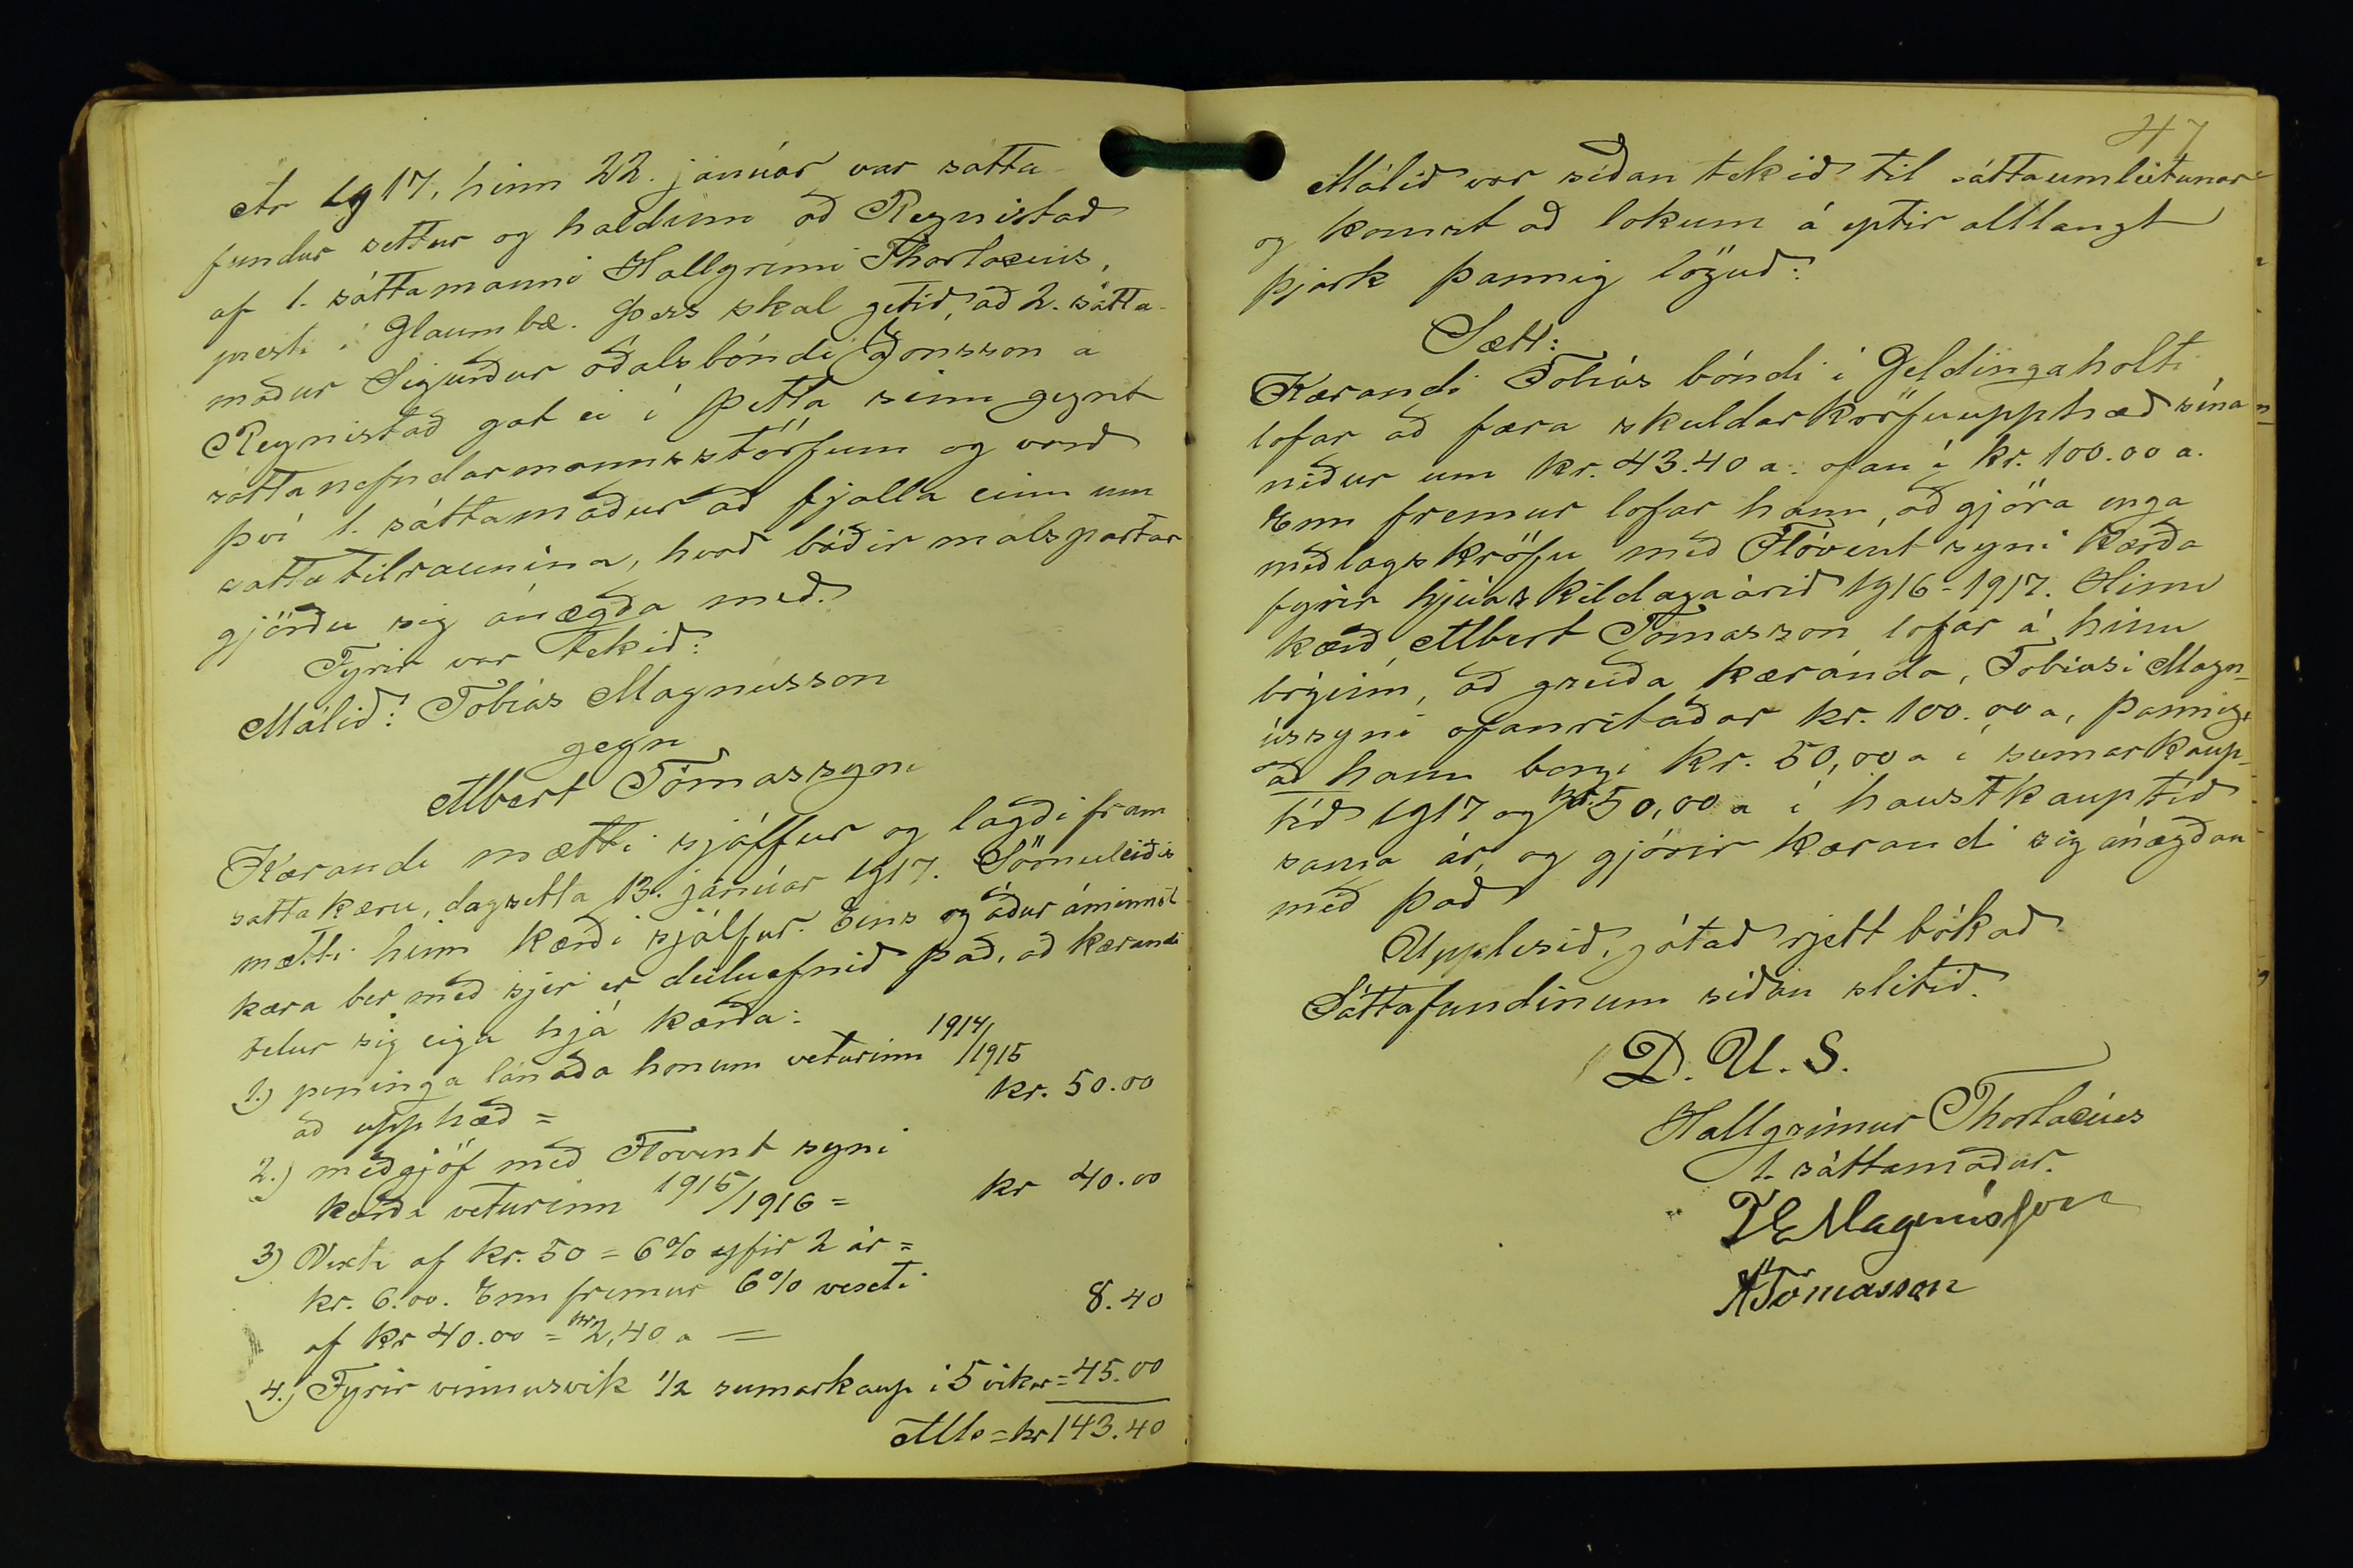 Ár 1917, hinn 22. janúar var sátta-
fundur settur og haldinn að Reynistað
af 1. sáttamanni Hallgrími Thorlacius,
presti í Glaumbæ. Þess skal getið, að 2. sátta-
maður Sigurður óðalsbóndi Jónsson á
Reynistað gat ei í þetta sinn gegnt
sáttanefndarmannsstörfum og varð
því 1. sáttamaður að fjalla einn um
sáttatilraunina, hvað báðir málspartar
gjörðu sig ánægða með.
Fyrir var tekið:
Málið: Tobías Magnússon
gegn
Albert Tómassyni
Kærandi mætti sjálfur og lagði fram
sáttakæru, dagsetta 13. janúar 1917. Sömuleiðis
mætti hinn kærði sjálfur. Eins og áður áminnst
kæra ber með sjer er deiluefnið það, að kærandi
telur sig eiga hjá kærða:
1.) peninga lánaða honum veturinn 1914/1915
að upphæð = kr. 50.00
2.) meðgjöf með Flóvent syni
kærða veturinn 1915/1916 = kr 40.00
3) Vexti af kr. 50 = 6% yfir 2 ár =
kr. 6.00. Enn fremur 6% vexti
af kr 40.00 = kr 2,40 a = 8.40
4.) Fyrir vinnusvik 1/2 sumarkaup í 5 vikur = 45.00
Alls = kr 143.40
47
Málið var síðan tekið til sáttaumleitunar
og komst að lokum á eptir alllangt
þjark þannig löguð:
Sætt:
Kærandi Tobías bóndi í Geldingaholti
lofar að færa skuldarkröfuupphæð sína
niður um kr. 43.40 a. ofan í kr. 100.00 a.
Enn fremur lofar hann, að gjöra enga
meðlagskröfu með Flóvent syni kærða
fyrir hjúaskildagaárið 1916-1917. Hinn
kærði, Albert Tómasson lofar á hinn
bóginn, að greiða kæranda, Tobíasi Magn-
ússyni ofanritaðar kr. 100.00 a, þannig,
að hann borgi kr. 50,00 a í sumarkaup-
tíð 1917 og kr. 50,00 a í haustkauptíð
sama ár, og gjörir kærandi sig ánægðan
með það
Upplesið, játað rjett bókað
Sáttafundinum síðan slitið.
D. U. S.
Hallgrímur Thorlacius
1. sáttamaður.
TE Magnússon
ATómasson